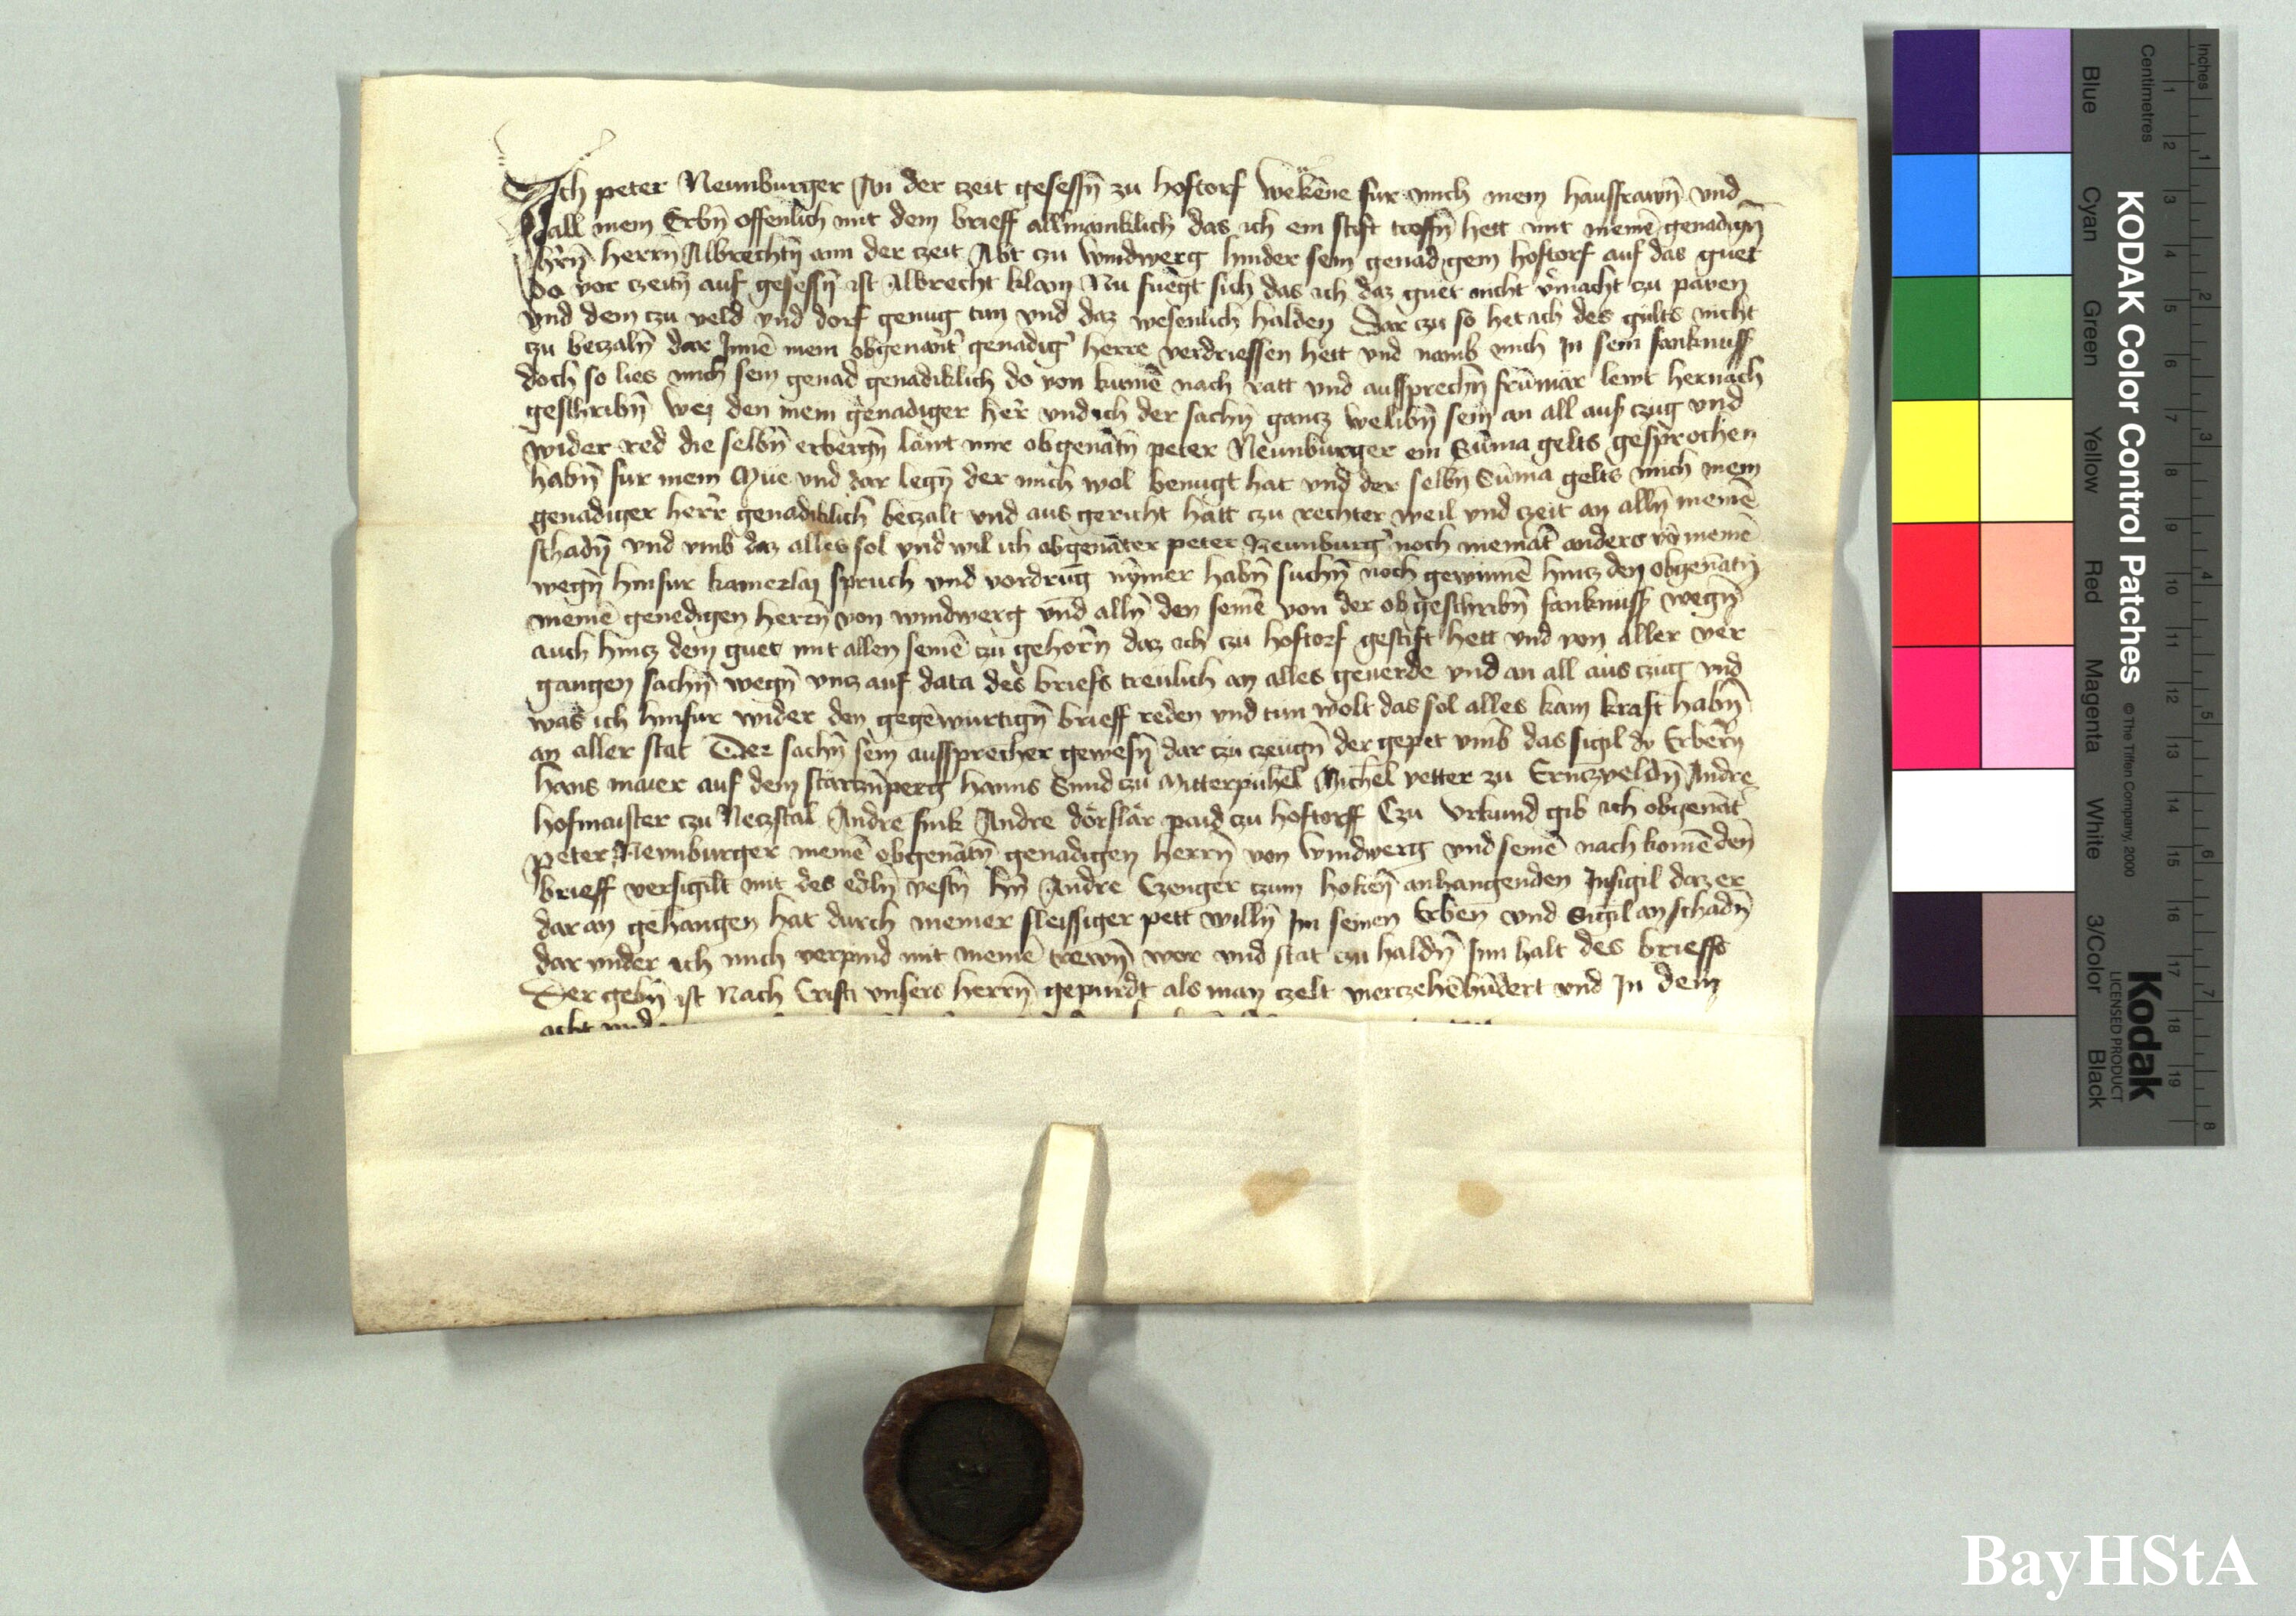 Ich peter Neunburger An der czeit gesessn̄ zu hoftorf wekēne fur mich mein hausfrawn̄ vnd
all mein Erbn̄ offenlich mit dem brieff allmaniklich das ich ein stift troffn̄ hett mit meinē genadign̄
hrn̄ herrn̄ Albrechtn̄ ann der czeit Abt czu windwerg hinder sein genadigem hoftorf auf das guet
do vor czeitn̄ auf gesessn̄ ist Albrecht Nu fuegt sich das ich daz guet nicht v̄macht czu pawen
vnd dem czu veld vnd dorf genug tun vnd daz wesenlich halden Dar czu so het ich des gults nicht
czu beczaln̄ dar Innē mein obgenant genadig herre verdriessen hett vnd namb mich In sein fanknuss
doch so lies mich sein genad genadiklich do von kumē nach ratt vnd aussprechn̄ frūmär lewt hernach
geschribn̄ wez den mein genadiger her̄ vnd ich der sachn̄ gantz welibn̄ sein an all aus czug vnd
wider red die selbn̄ erbergn̄ läwt mir obgenātn̄ peter Neunburger ein Sūma gelts gesprochen
habn̄ fur mein Mue vnd dar legn̄ der mich wol benugt hat vnd der selbn̄ Sūma gelts mich mein
genadiger herr genadiklich beczalt vnd aus gericht hatt czu rechter weil vnd czeit an alln̄ meinē
schadn̄ vnd vmb daz alles sol vnd wil ich obgenāter peter Neunburg noch niemāt anders vō meinē
wegn̄ hinfur kainerlai spruch vnd vordrūg nȳmer habn̄ suchn̄ noch gewinnē hintz den obgenātn̄
meinē genedigen herrn̄ von windwerg vnd alln̄ den seinē von der ob geschribn̄ fanknuss wegn̄
auch hintz dem guet mit allen seinē czu gehorn̄ daz ich czu hoftorf gestift hett vnd von aller ver
gangen sachn̄ wegn̄ vntz auf data des briefs treulich an alles geuerde vnd an all aus czug vnd
was ich hinfur wider den gegēwurtign̄ brieff reden vnd tun wolt das sol alles kain kraft habn̄
an aller stat Der sachn̄ sein aussprecher gewesn̄ dar czu czeugn̄ der gepet vmb das sigil dy Erbern̄
hans maier auf dem hanns Sund czu Mitterpuhel Michel vetter zu Ernczveldn̄ Andre
hofmaister czu Neczstal Andre fink Andre dörflär paid czu hoftorff Czu Vrkund gib ich obgenāt
peter Newnburger meinē obgenātn̄ genadigen herrn̄ von windwerg vnd seinē nach komē den
brieff versigilt mit des edln̄ vestn̄ hn̄ Andre Czenger czum hoken̄ anhangenden Insigil daz er
dar an gehangen hat durch meiner fleissiger pett willn̄ Im seinen Erben vnd Sigil an schadn̄
dar vnder ich mich verpind mit meinē trewn̄ war vnd stat czu haldn̄ Inn halt des brieffs
Der gebn̄ ist Nach Cristi vnsers herrn̄ gepurdt als man czelt vierczehēhūdert vnd In dem
acht vnd
KODAK Color Control Patches
© The Tiffen Company, 2000
Kodak
LICENSED PRODUCT
Inches
Centimetres
Blue
Cyan
Green
Yellow
Red
Magenta
White
3/Color
Black
1 2 3 4 5 6 7 8
1 2 3 4 5 6 7 8 9 10 11 12 13 14 15 16 17 18 19
BayHStA